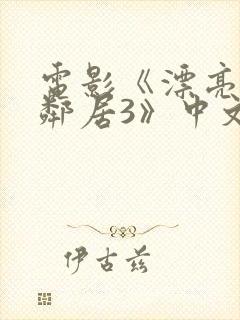 電影《漂亮
鄰居3》中文
伊古茲